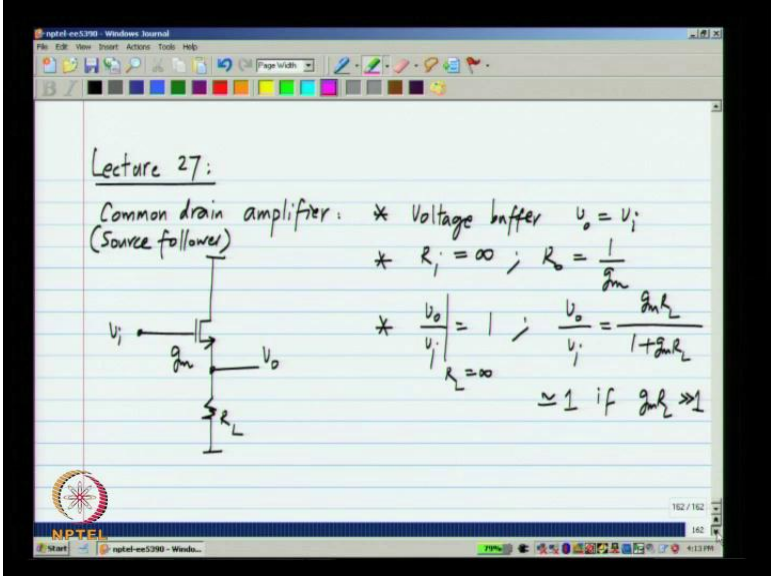 nptel-ee5390 - Windows Journal
File Edit View Insert Actions Tools Help
Page Width
B I
Lecture 27:
Common drain amplifier: * Voltage buffer v_o = v_i
(Source follower) * R_i = ∞ ; R_o = 1/g_m
* v_o/v_i |_{R_L = ∞} = 1 ; v_o/v_i = g_m R_L / (1 + g_m R_L)
≃ 1 if g_m R_L >> 1
v_i
g_m
v_o
R_L
162 / 162
162
NPTEL
Start nptel-ee5390 - Windo... 79% 4:13 PM